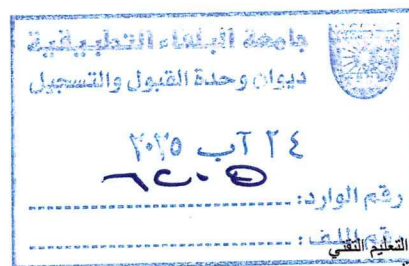 جامعة البلقاء التطبيقية
ديوان وحدة القبول والتسجيل
٢٤ آب ٢٠٢٥
رقم الوارد:
رقم الملف:
التعليم التقني